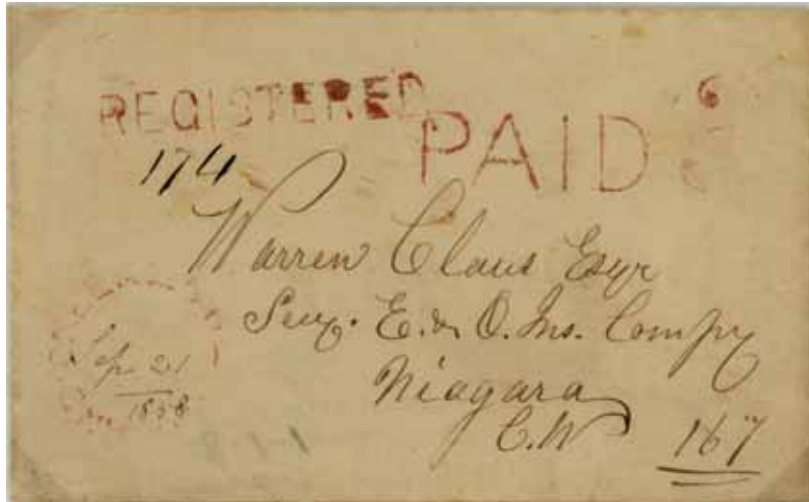 REGISTERED
PAID 6
174
Warren Claus Esqr
Secy. E. & O. Ins. Compy
Niagara
C.W
Sep 21
1858
167